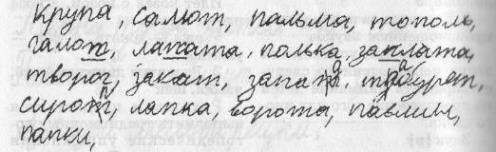 крупа, салют, пальма, тополь,
галоп, лапата, полька, заплата,
творог, закат, запад, табурет,
сироп, лапка, ворота, павлин,
папки,